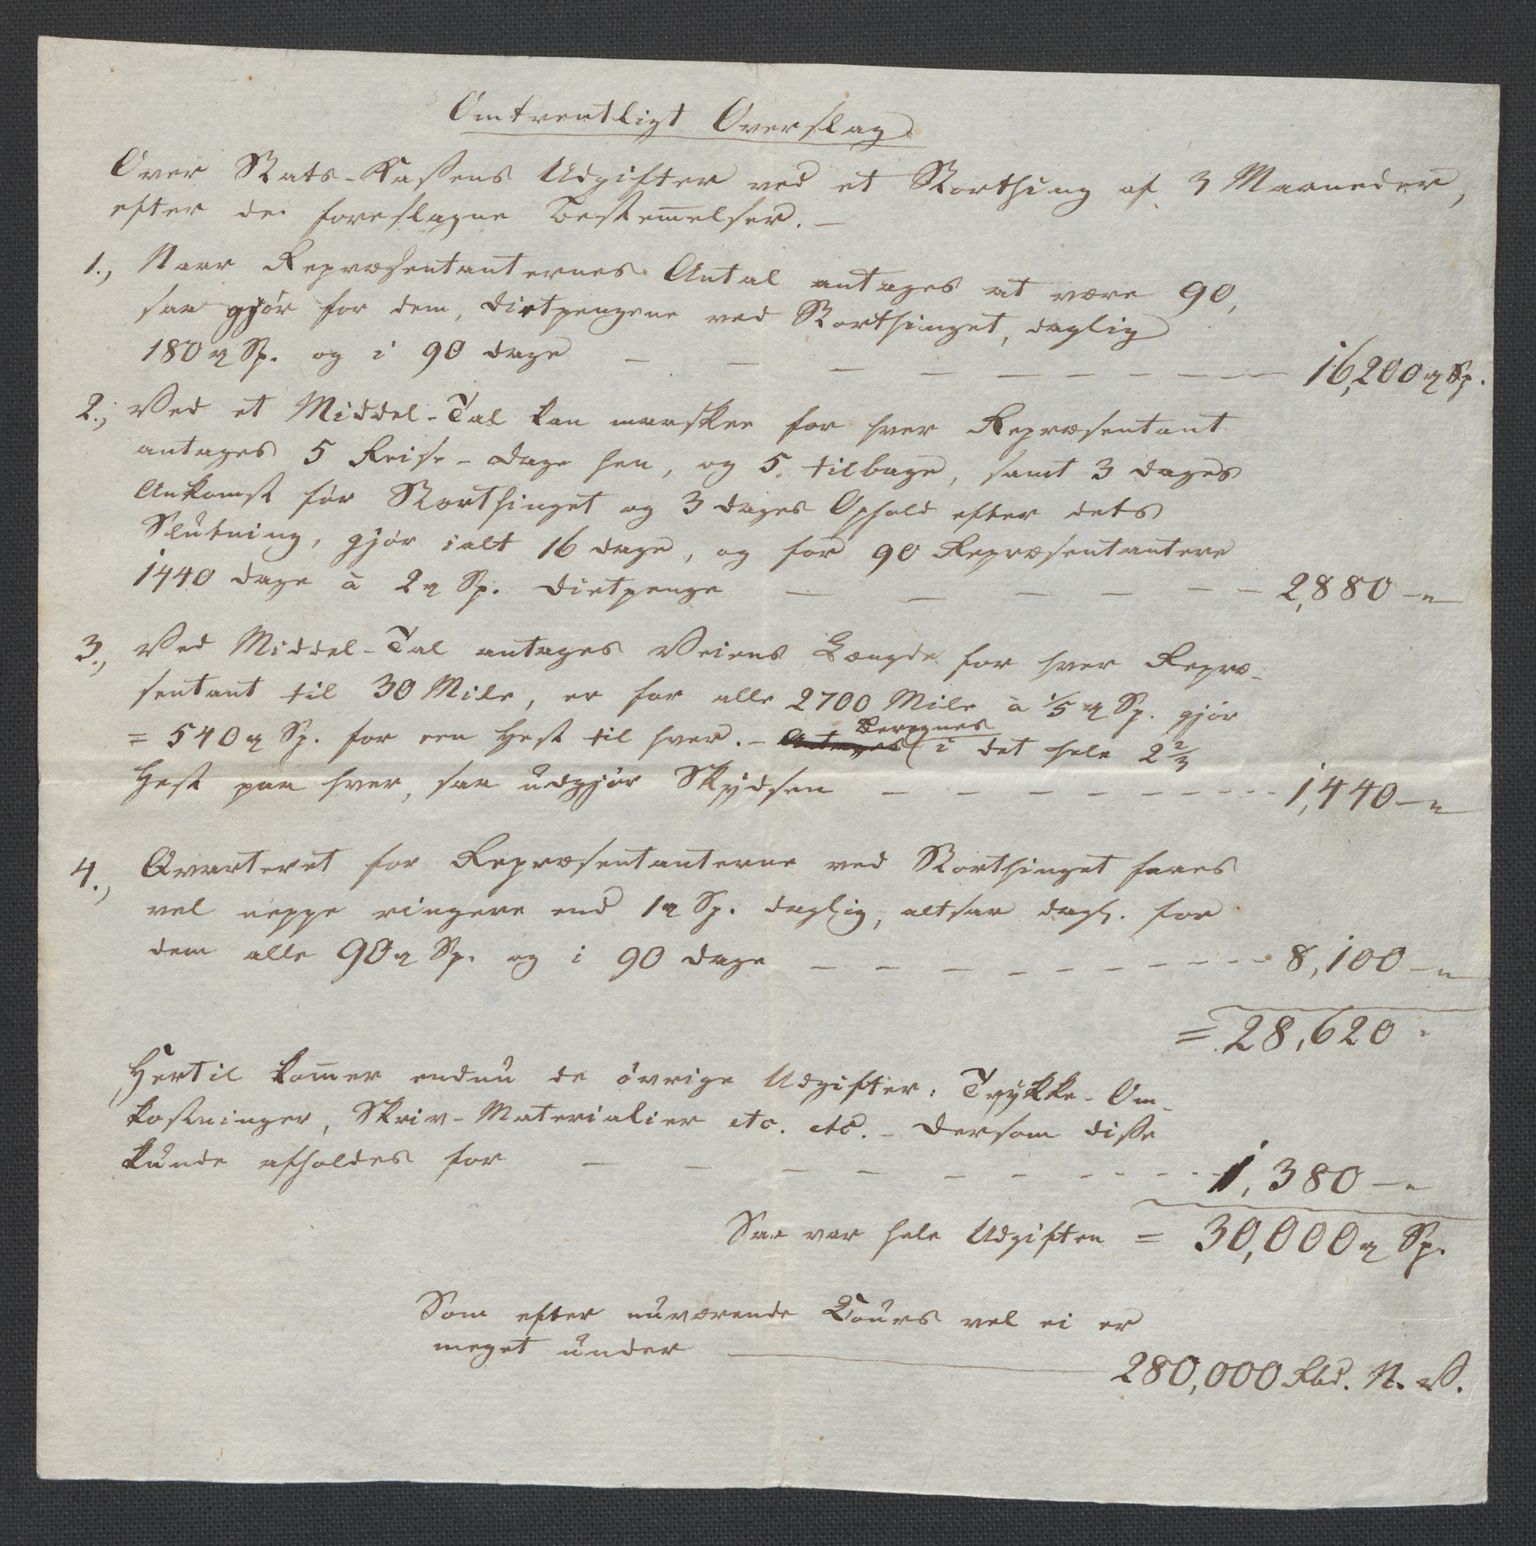 Omtrentligt Overslag
Over Stats-Kassens Udgifter ved et Storthing af 3 Maaneder,
efter de foreslagne Bestem̅elser. —
1., Naar Repræsentanternes Antal antages at være 90,
saa gjør for dem, Dietpengene ved Storthinget, daglig
180 rSp. og i 90 dage — — — — — — — — 16,200 rSp.
2., Ved et Middel-Tal kan maaskee for hver Repræsentant
antages 5 Reise-Dage hen, og 5 tilbage, samt 3 dages
Ankomst før Storthinget og 3 dages Ophold efter dets
Slutning, gjør ialt 16 dage, og for 90 Repræsentantere
1440 dage à 2 rSp. Dietpenge — — — — — — 2,880 — "
3., Ved Middel-Tal antages Veiens Længde for hver Repræ-
sentant til 30 Mile, er for alle 2700 Mile à 1/5 rSp. gjør
= 540 rSp. for een Hest til hver. — Antages Beregnes i det hele 2 2/3
Hest paa hver, saa udgjør Skydsen — — — — — — 1,440 — "
4., Qvarteret for Repræsentanterne ved Storthinget faaes
vel neppe ringere end 1 rSp. daglig, altsaa dagl. for
dem alle 90 rSp. og i 90 dage — — — — — — — 8,100 — "
= 28,620 "
Hertil kom̅er endnu de øvrige Udgifter: Trykke-Om-
kostninger, Skriv-Materialier etc. etc. — Dersom disse
kunde afholdes for — — — — — — — 1,380 — "
Saa var hele Udgiften = 30,000 r Sp.
Som efter nuværende Cours vel ei er
meget under — 280,000 Rbd. N. V.